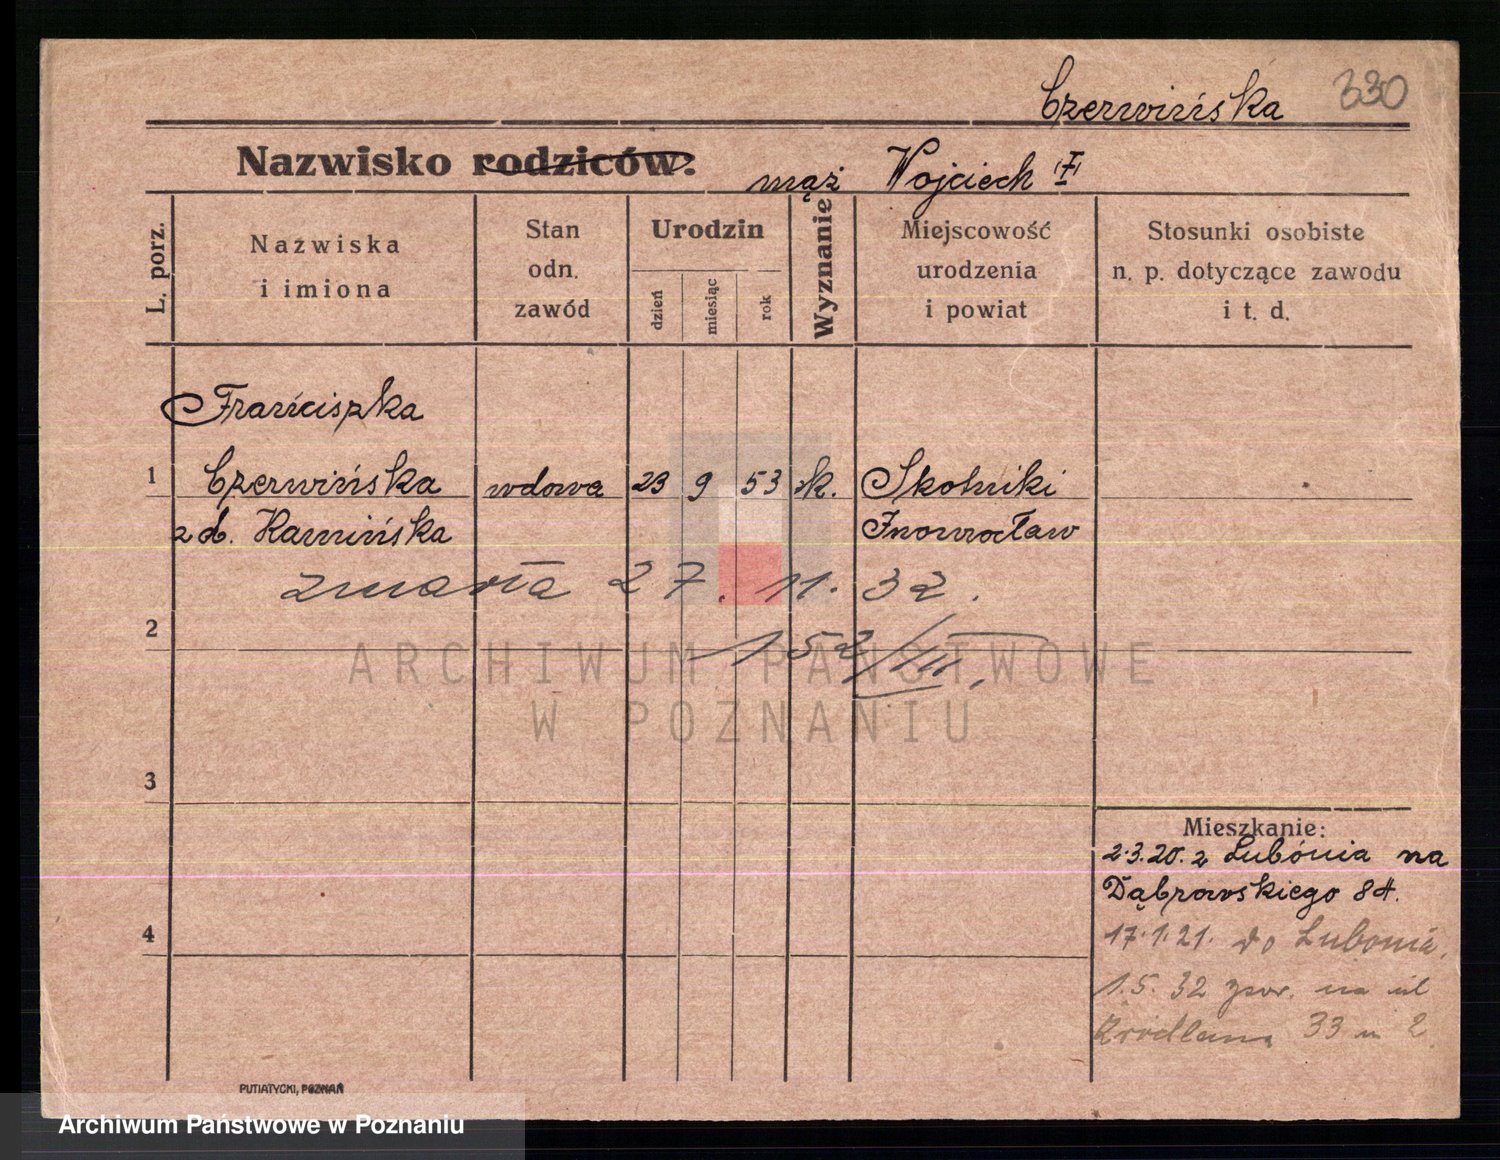 Czerwińska 330
Nazwisko rodziców: mąż Wojciech
L. porz.
Nazwiska
i imiona
Stan
odn.
zawód
Urodzin
dzień
miesiąc
rok
Wyznanie
Miejscowość
urodzenia
i powiat
Stosunki osobiste
n. p. dotyczące zawodu
i t. d.
Franciszka
1 Czerwińska wdowa 23 9 53 rk. Skotniki
z d. Kamińska Inowrocław
zmarła 27. 11. 32.
2
152/III.
3
4
Mieszkanie:
2.3.20. z Lubonia na
Dąbrowskiego 84.
17.1.21. do Lubonia.
1.5.32 na ul
Zrodlana 33 m 2.
PUTIATYCKI, POZNAŃ
ARCHIWUM PAŃSTWOWE
W POZNANIU
Archiwum Państwowe w Poznaniu